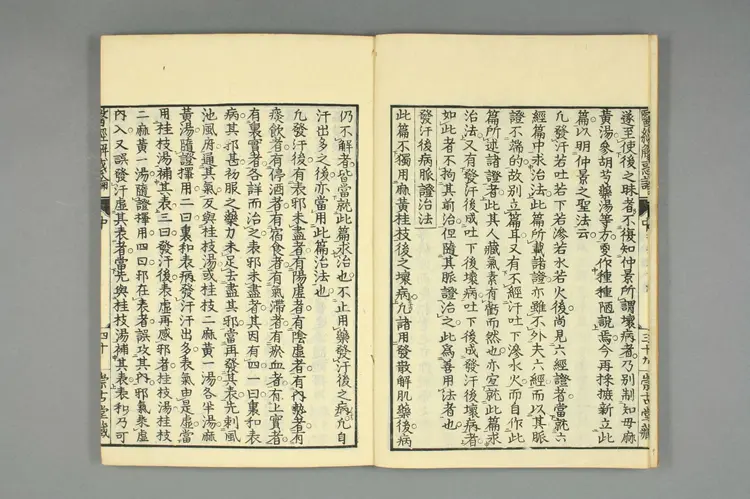 遂至使後之昧者不復知仲景所謂壞病者乃別制知母麻
黃湯參胡芍藥湯等方更作種種陋說焉今再採摭新立此
篇以明仲景之聖法云
凡發汗若吐若下若滲若水若火後尚見六經證者當就六
經篇中求治法此篇所載諸證亦雖不外夫六經而以其脈
證不端的故別立篇耳又有不經汗吐下滲水火而自作此
篇所述諸證者此其人藏氣素有虧而然也亦宜就此篇求
治法又有發汗後成吐下後壞病吐下後成發汗後壞病者
如此者不拘其前治但隨其脈證治之此為善用法者也
發汗後病脈證治法
此篇不獨用麻黃桂枝後之壞病凡諸用發散解肌藥後病
仍不解者皆當就此篇求治也不止用藥發汗後之病凡自
汗出多之後亦當用此篇治法也
凡發汗後有表邪未盡者有陽虛者有陰虛者有內熱者有
痰飲者有停酒者有宿食者有氣滯者有瘀血者有上實者
有裏實者各詳而治之表邪未盡者其因有四一曰裏和表
病其邪甚初服之藥力未足去盡其邪當再發其表先刺風
池風府通其氣及與桂枝湯或桂枝二麻黃一湯各半湯麻
黃湯隨證擇用二曰裏和表病發汗汗出多表氣由是虛當
用桂枝湯補其表三曰發汗後表虛再感邪者桂枝湯桂枝
二麻黃一湯隨證擇用四曰邪在表者誤攻其內邪氣乘虛
內入又誤發汗虛其表者當先與桂枝湯補其表表和乃可
醫經解惑論
中
三十九
崇古堂藏
醫經解惑論
中
四十
崇古堂藏